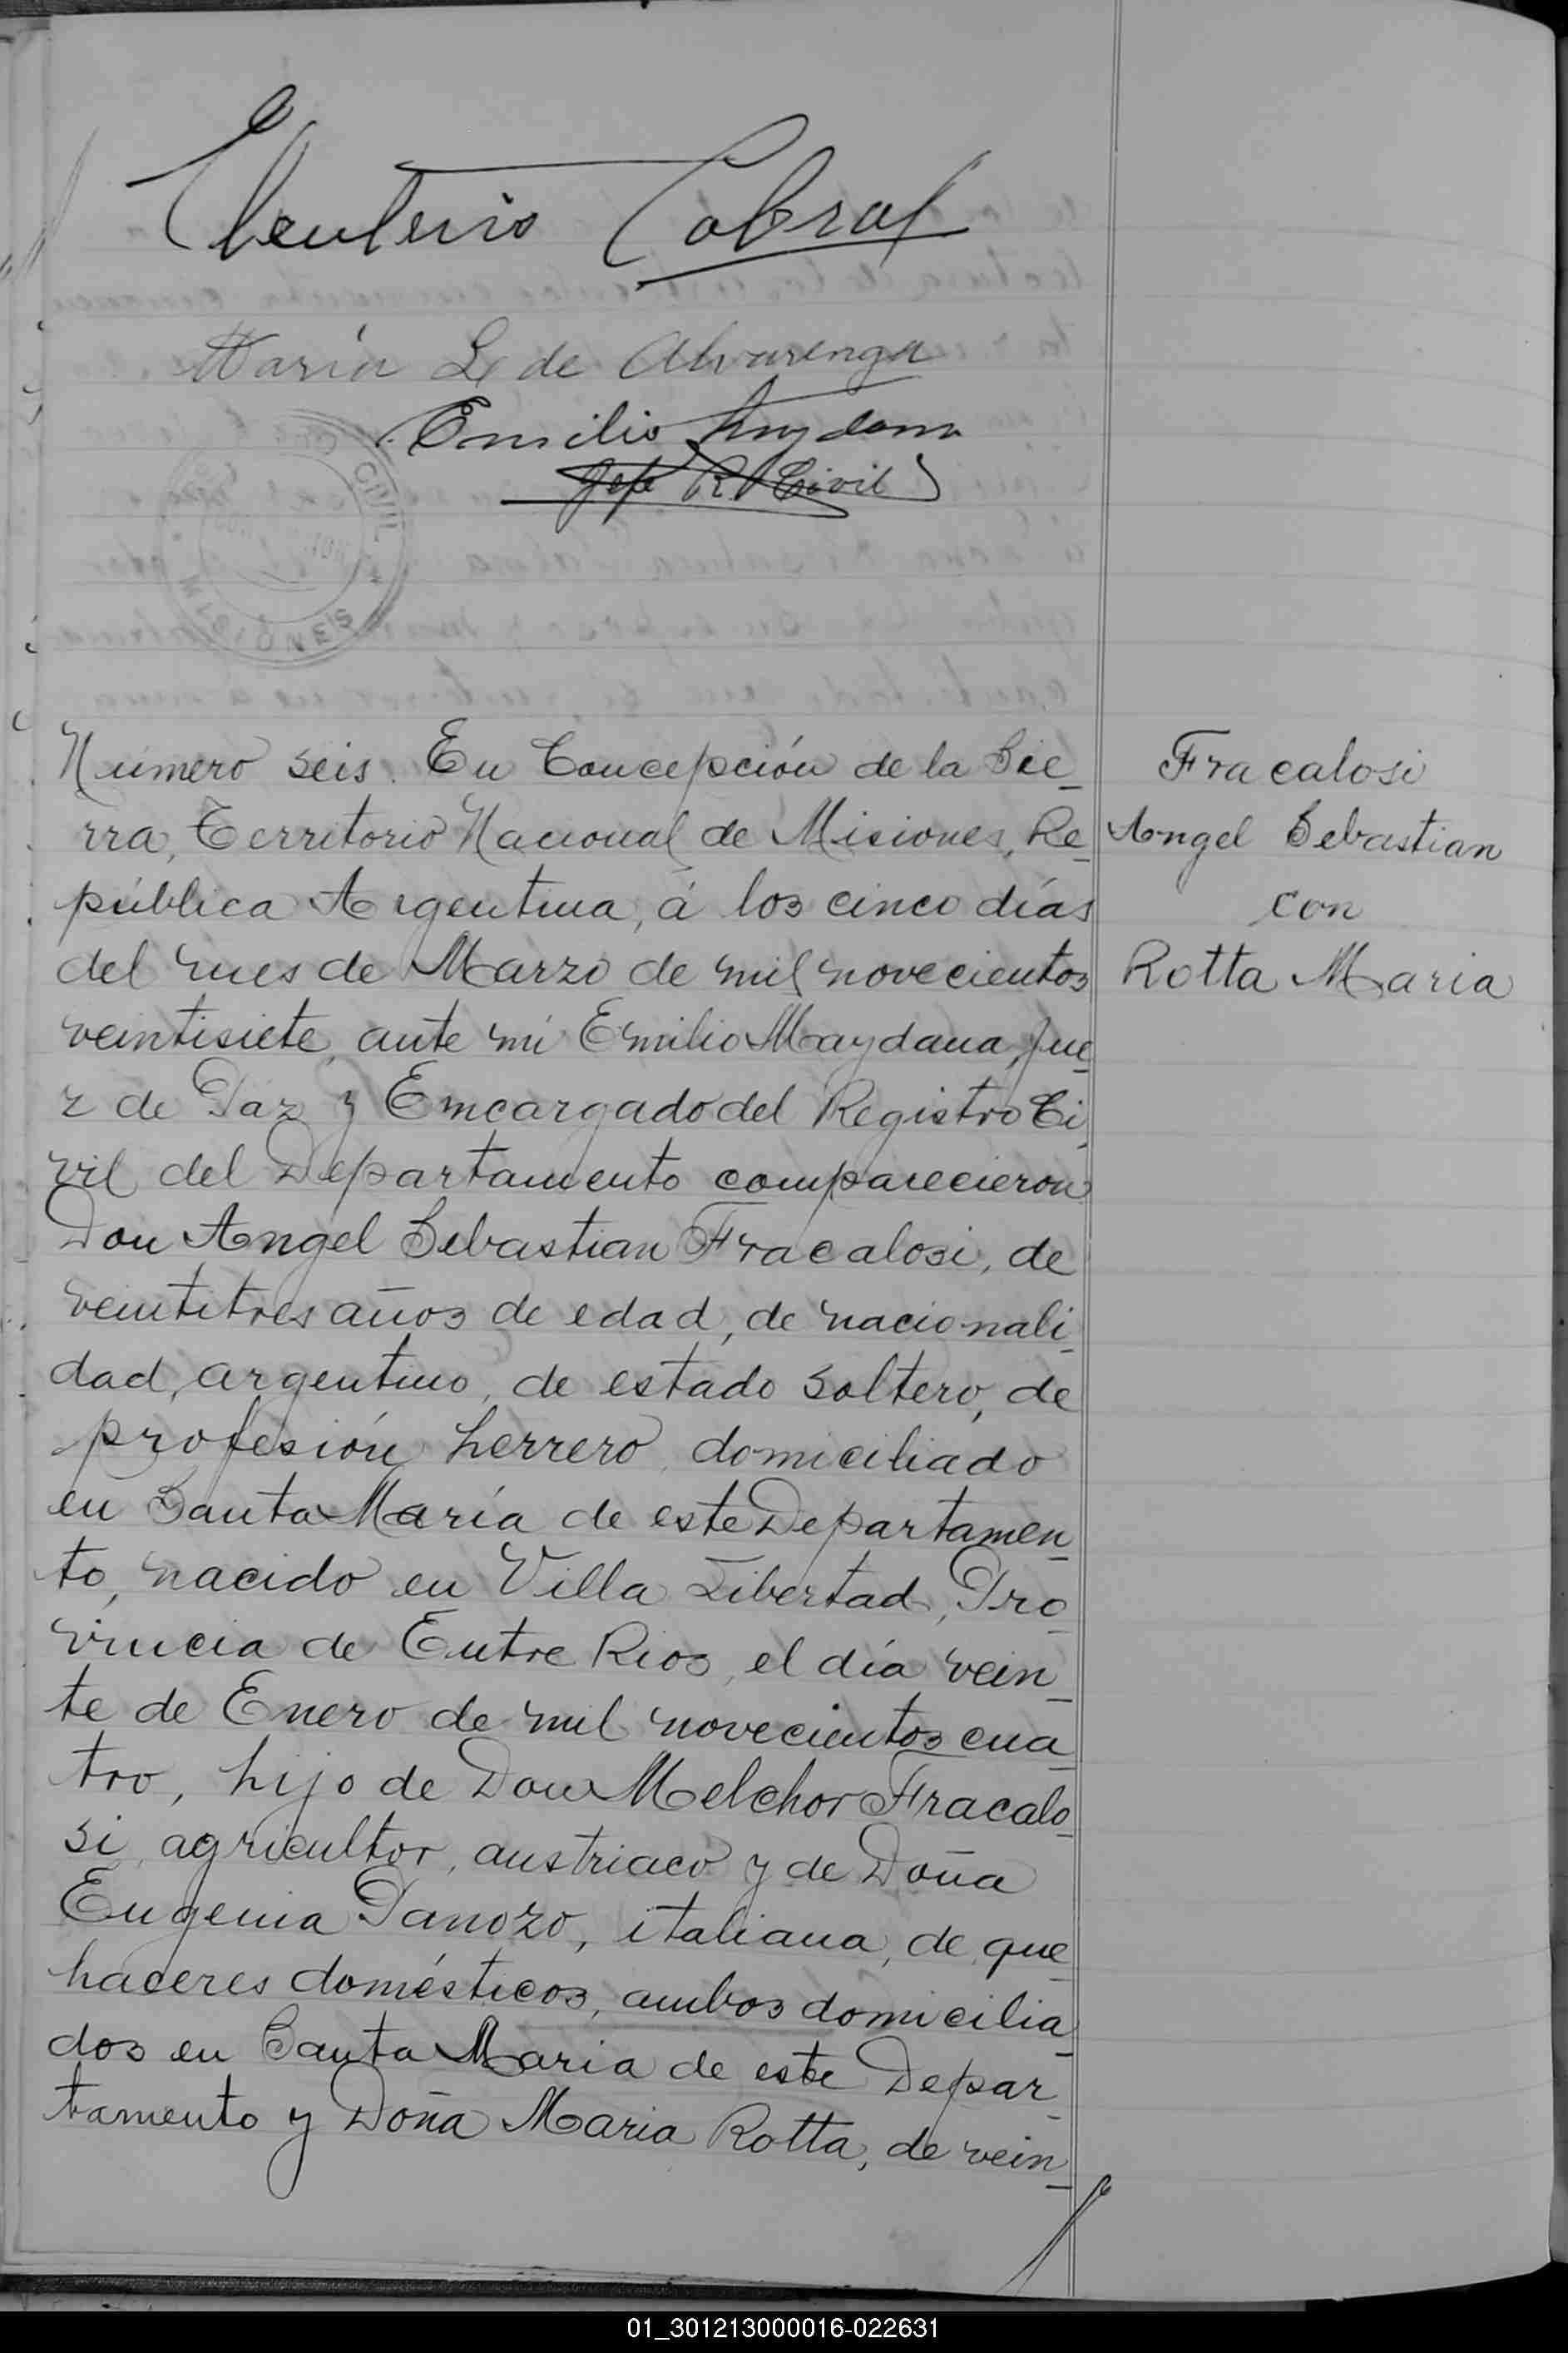 Eleuterio Cabral
María L. de Alvarenga
Emilio Maydana
Jefe R. Civil
CIVIL
MISIONES
Número seis. En Concepción de la Sie_
rra, Territorio Nacional de Misiones, Re_
pública Argentina, á los cinco días
del mes de Marzo de mil novecientos
veintisiete, ante mi Emilio Maydana, Jue_
z de Paz y Emcargado del Registro Ci_
vil del Departamento comparecieron
Don Angel Sebastian Fracalosi, de
veintitres años de edad, de nacionali_
dad, argentino, de estado soltero, de
profesión herrero, domiciliado
en Santa María de este Departamen_
to, nacido en Villa Libertad, Pro_
vincia de Entre Rios, el día vein_
te de Enero de mil novecientos cua_
tro, hijo de Don Melchor Fracalo_
si, agricultor, austriaco y de Doña
Eugenia Panozo, italiana, de que_
haceres domésticos, ambos domicilia_
dos en Santa Maria de este Depar_
tamento y Doña Maria Rotta, de vein_
Fracalosi
Angel Sebastian
con
Rotta Maria
01_301213000016-022631